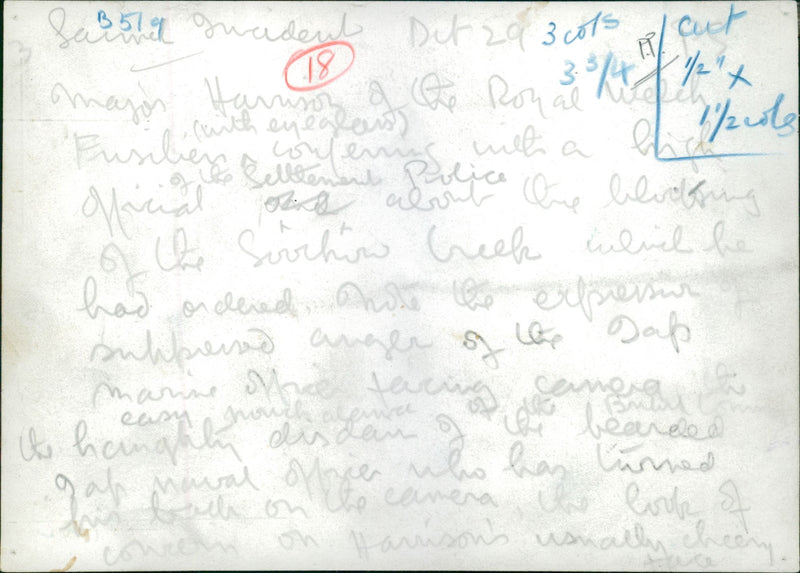 B519
Incident Oct 29 3 cols
18
3 3/4
cut
1/2" x
1 1/2 cols
Major Harrison of the Royal Welch
(with eyeglass)
Fusiliers, conferring with a high
of the Settlement Police
official about the blocking
of the Soochow Creek which he
had ordered. Note the expression of
suppressed anger of the Jap
marine officer facing camera, the
easy nonchalance of the British
the haughty disdain of the bearded
Jap naval officer who has turned
his back on the camera, the look of
concern on Harrison's usually cheery
face